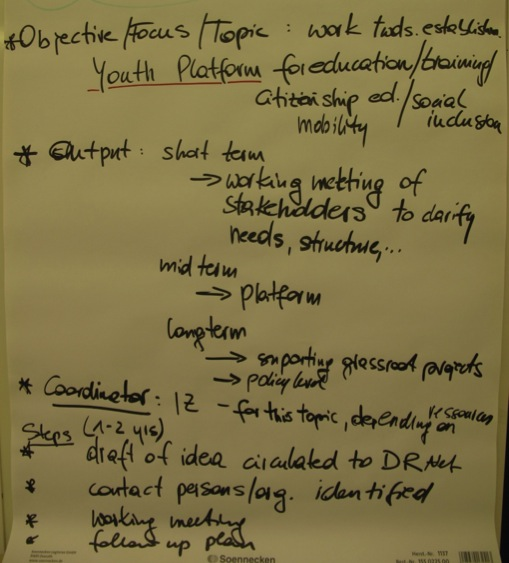 * Objective/Focus/Topic : work twds. establishm.
Youth Platform for education/training/
citizenship ed./social
mobility inclusion
* Output : short term
→ working meeting of
stakeholders to clarify
needs, structure,...
mid term
→ platform
longterm
→ supporting grassroot projects
→ policy level
* Coordinator : IZ - for this topic, depending on ressources
Steps (1-2 yrs)
* draft of idea circulated to DR Net
* contact persons/org. identified
* working meeting
* follow up plan
Soennecken
Best. Nr. 1137